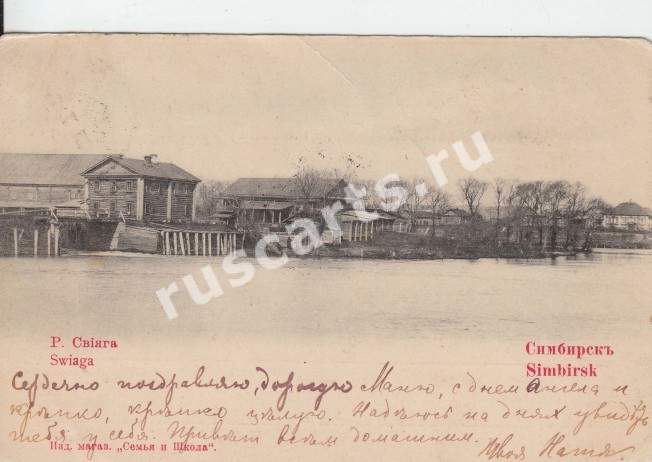 ruscarts.ru
Р. Свіяга
Swiaga
Симбирскъ
Simbirsk
Сердечно поздравляю, дорогую Маню, с днем ангела и
крепко, крепко целую. Надеюсь на днях увидѣть
тебя у себя. Привет всем домашним.
Твоя Катя.
Изд. магаз. „Семья и Школа“.